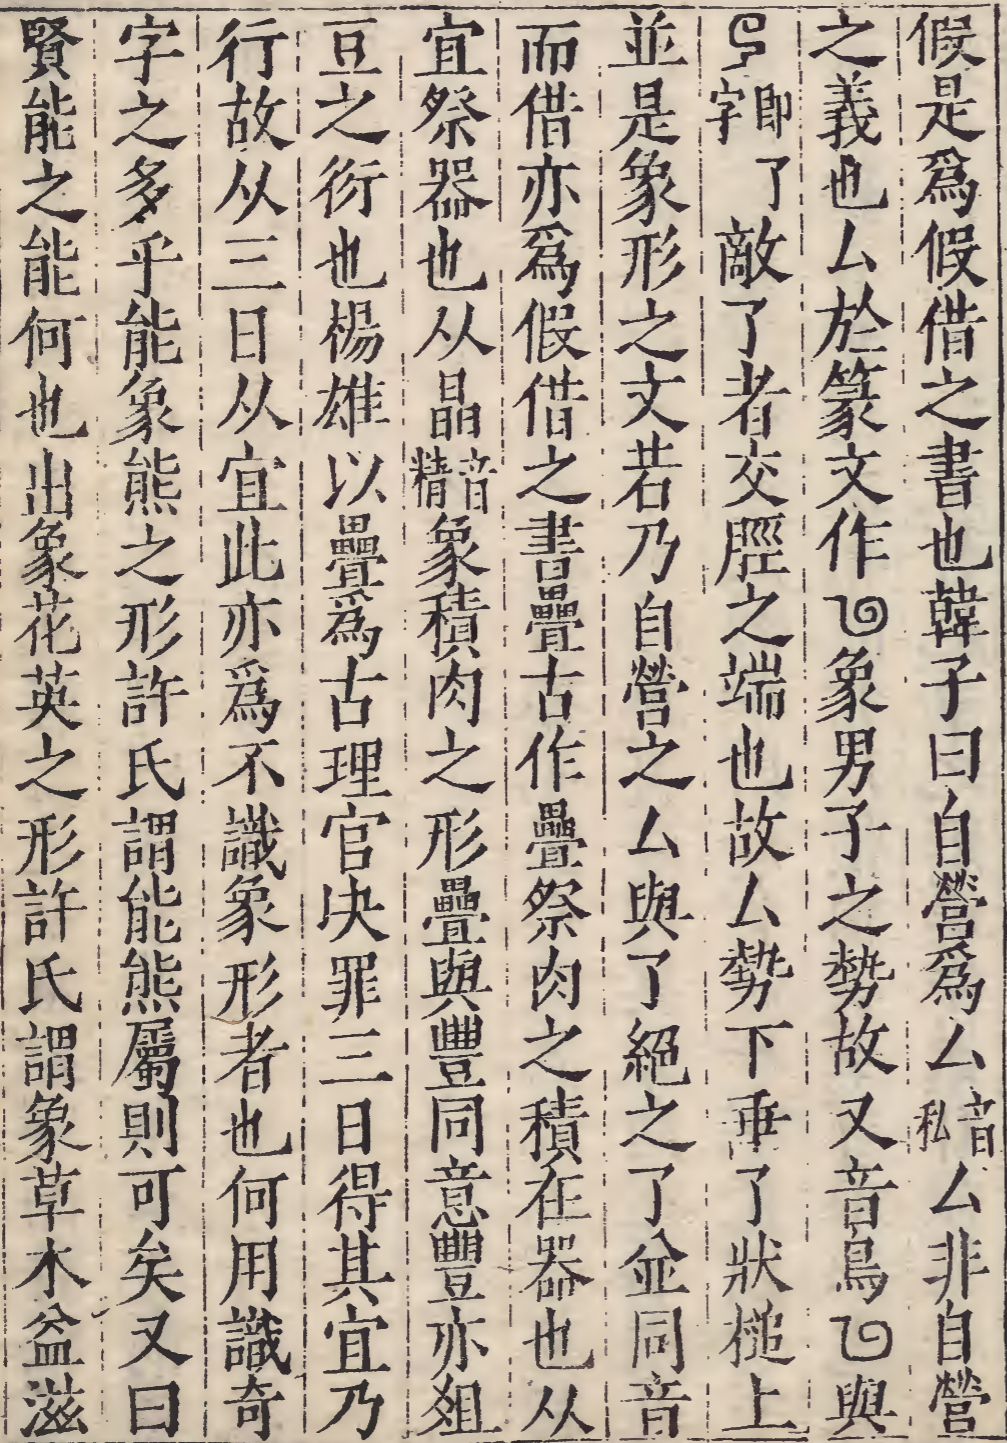 假是爲假借之書也韓子曰自營爲厶音私厶非自營
之義也厶於篆文作象男子之勢故又音鳥與
即了字了敵了者交脛之端也故厶勢下垂了狀槌上
並是象形之文若乃自營之厶與了絕之了並同音
而借亦爲假借之書疊古作疊祭肉之積在器也从
宜祭器也从晶音精象積肉之形疊與豐同意豐亦俎
豆之衍也楊雄以疊爲古理官决罪三日得其宜乃
行故从三日从宜此亦爲不識象形者也何用識奇
字之多乎能象熊之形許氏謂能熊屬則可矣又曰
賢能之能何也出象花英之形許氏謂象草木益滋